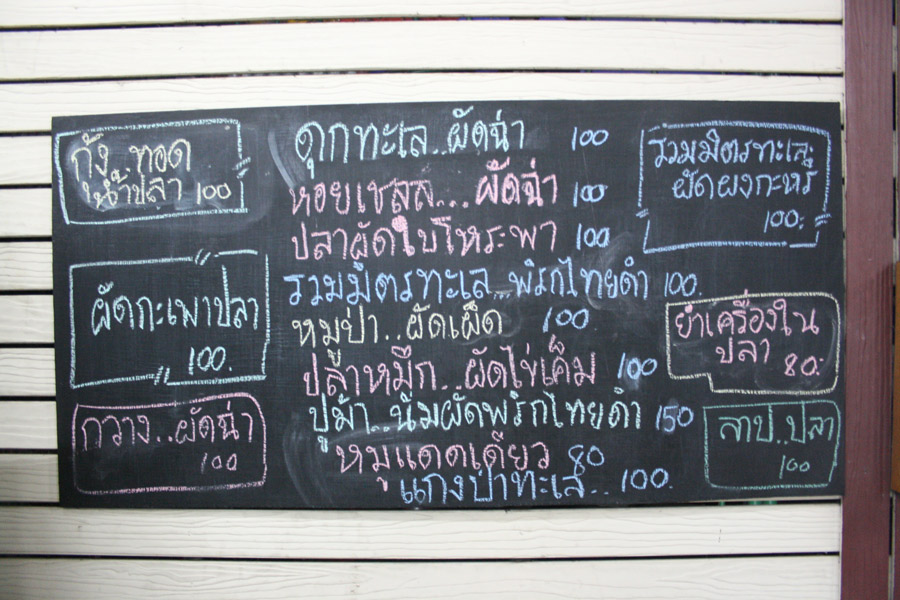 กุ้ง ทอด
น้ำปลา 100
ผัดกะเพาปลา
100.
กวาง...ผัดฉ่า
100
ดุกทะเล..ผัดฉ่า 100
หอยเชลล...ผัดฉ่า 100
ปลาผัดใบโหระพา 100
รวมมิตรทะเล...พริกไทยดำ 100.
หมูป่า..ผัดเผ็ด 100
ปลาหมึก..ผัดไข่เค็ม 100
ปูม้า..นิ่มผัดพริกไทยดำ 150
หมูแดดเดียว 80
แกงป่าทะเล.. 100.
รวมมิตรทะเล
ผัดผงกะหรี่
100.
ยำเครื่องใน
ปลา 80.
ลาป..ปลา
100